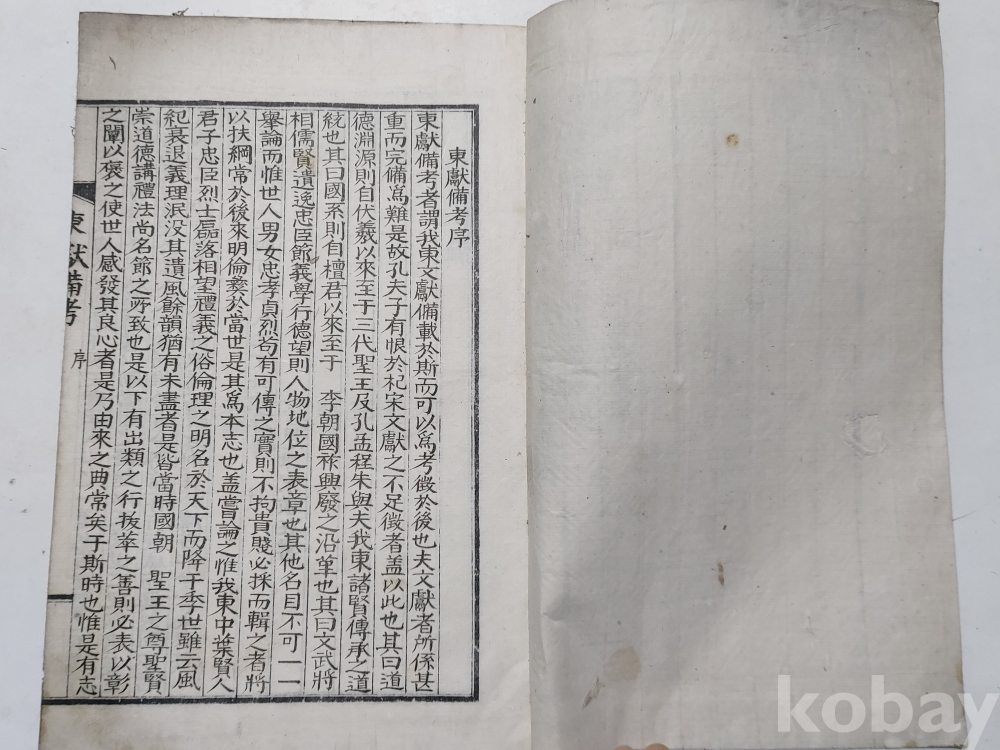 東獻備考序
東獻備考者謂我東文獻備載於斯而可以爲考徵於後也夫文獻者所係甚
重而完備爲難是故孔夫子有恨於杞宋文獻之不足徵者盖以此也其曰道
德淵源則自伏羲以來至于三代聖王及孔孟程朱與夫我東諸賢傳承之道
統也其曰國系則自檀君以來至于 李朝國祚興廢之沿革也其曰文武將
相儒賢遺逸忠臣節義學行德望則人物地位之表章也其他名目不可一一
擧論而惟世人男女忠孝貞烈苟有可傳之實則不拘貴賤必採而輯之者將
以扶綱常於後來明倫彝於當世是其爲本志也盖嘗論之惟我東中葉賢人
君子忠臣烈士磊落相望禮義之俗倫理之明名於天下而降于季世雖云風
紀衰退義理泯没其遺風餘韻猶有未盡者是皆當時國朝 聖王之尊聖賢
崇道德講禮法尚名節之所致也是以下有出類之行拔萃之善則必表以彰
之闡以褒之使世人感發其良心者是乃由來之典常矣于斯時也惟是有志
東獻備考 序
kobay